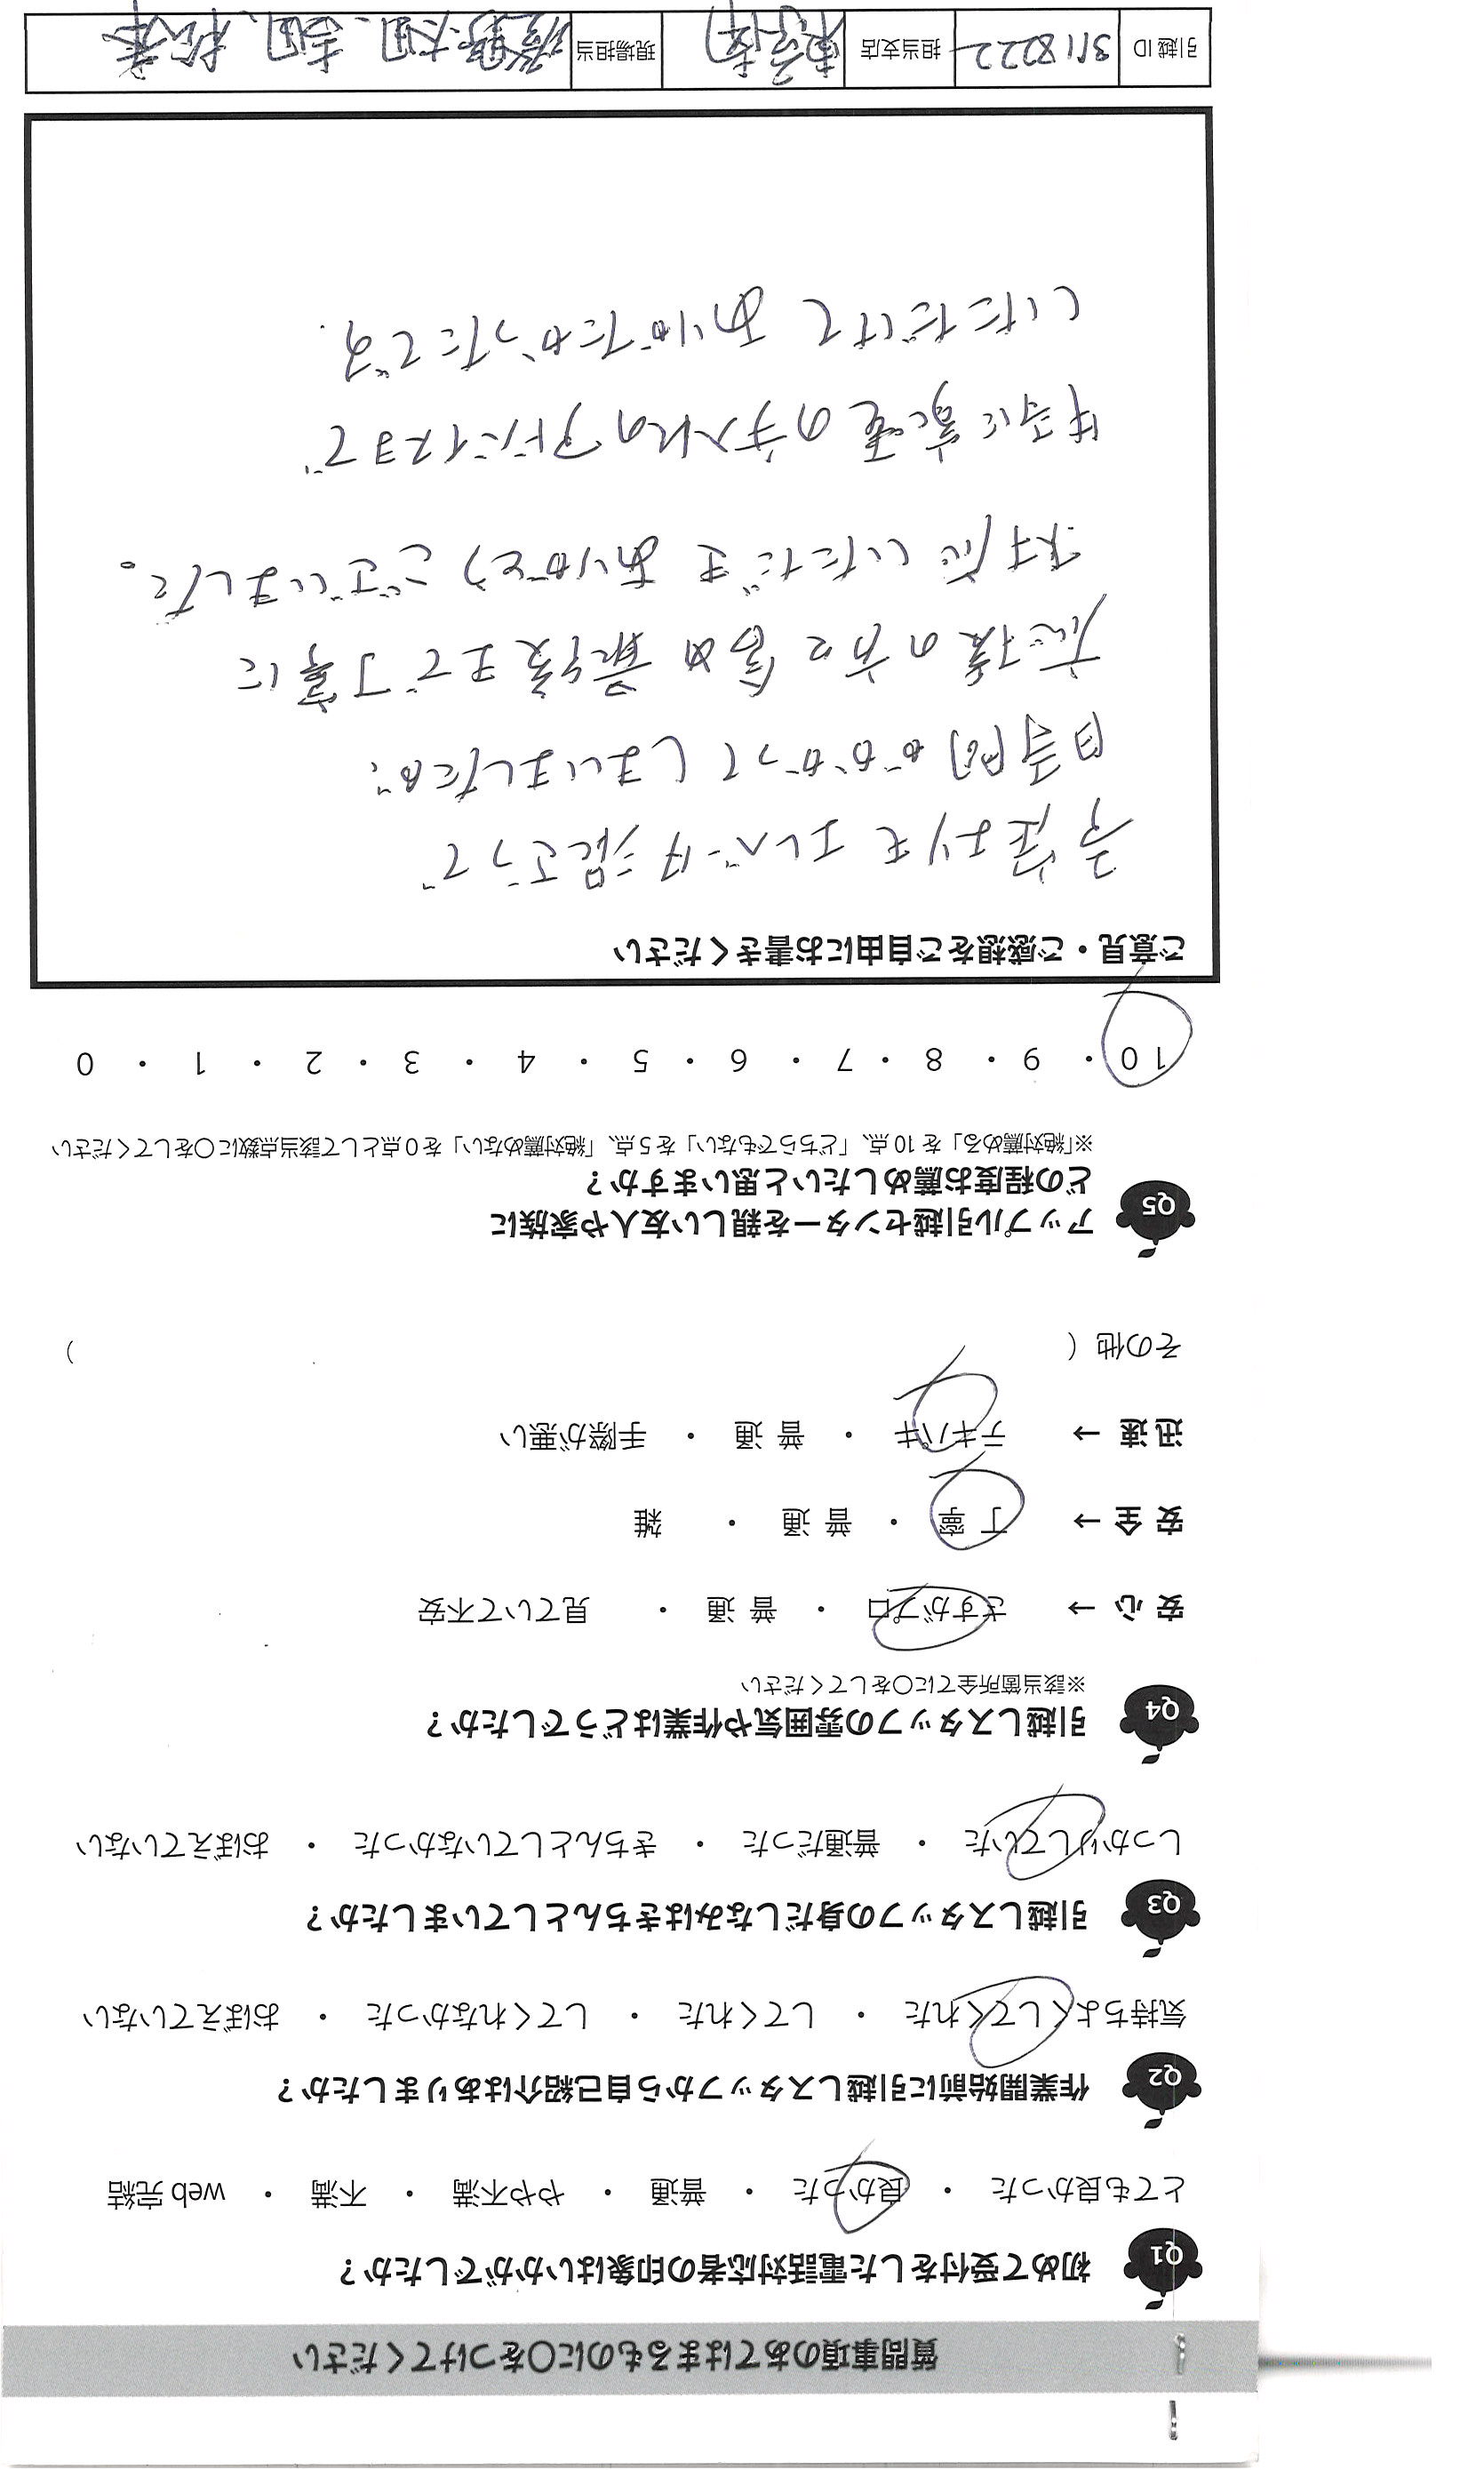 質問事項のあてはまるものに〇をつけてください
Q1 初めて受付をした電話対応者の印象はいかがでしたか?
とても良かった ・ 良かった ・ 普通 ・ やや不満 ・ 不満 ・ web 完結
Q2 作業開始前に引越しスタッフから自己紹介はありましたか?
気持ちよくしてくれた ・ してくれた ・ してくれなかった ・ おぼえていない
Q3 引越しスタッフの身だしなみはきちんとしていましたか?
しっかりしていた ・ 普通だった ・ きちんとしていなかった ・ おぼえていない
Q4 引越しスタッフの雰囲気や作業はどうでしたか?
※該当箇所全てに〇をしてください
安 心 → さすがプロ ・ 普 通 ・ 見ていて不安
安 全 → 丁 寧 ・ 普 通 ・ 雑
迅 速 → テキパキ ・ 普 通 ・ 手際が悪い
その他 ( )
Q5 アップル引越センターを親しい友人や家族に
どの程度お薦めしたいと思いますか?
※「絶対薦める」を 10 点、「どちらでもない」を 5 点、「絶対薦めない」を 0 点として該当点数に〇をしてください
10 ・ 9 ・ 8 ・ 7 ・ 6 ・ 5 ・ 4 ・ 3 ・ 2 ・ 1 ・ 0
ご意見・ご感想をご自由にお書きください
予定よりも エレベータ 混こって
時間がかかってしまいましたが、
応援の方も含め 最後まで丁寧に
対応いただき ありがとうございました。
特に家電の手入れのアドバイスまで
いただけて ありがたかったです.
引越 ID 3118222 担当支店 東京南 現場担当 大田、吉田、松本